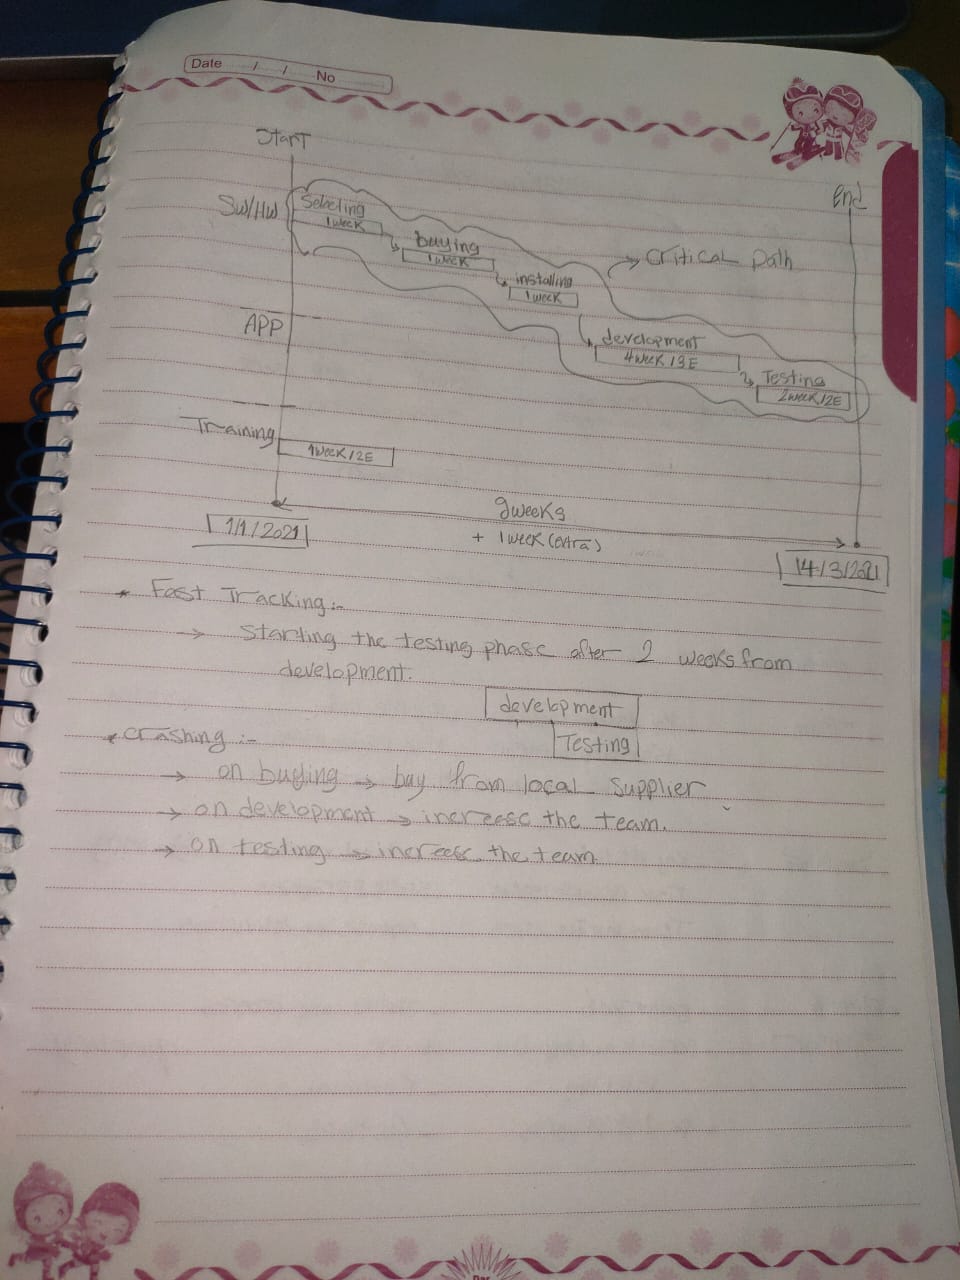 Date / / No
Start
End
SW/HW
Selecting
1week
buying
1week
installing
1week
critical path
APP
development
4week/3E
Testing
2week/2E
Training
1week/2E
9weeks
+ 1week (extra)
1/1/2021
14/3/2021
* Fast Tracking:-
→ Starting the testing phase after 2 weeks from
development.
development
Testing
* crashing :-
→ on buying → buy from local supplier
→ on development → increese the team.
→ on testing → increese the team.